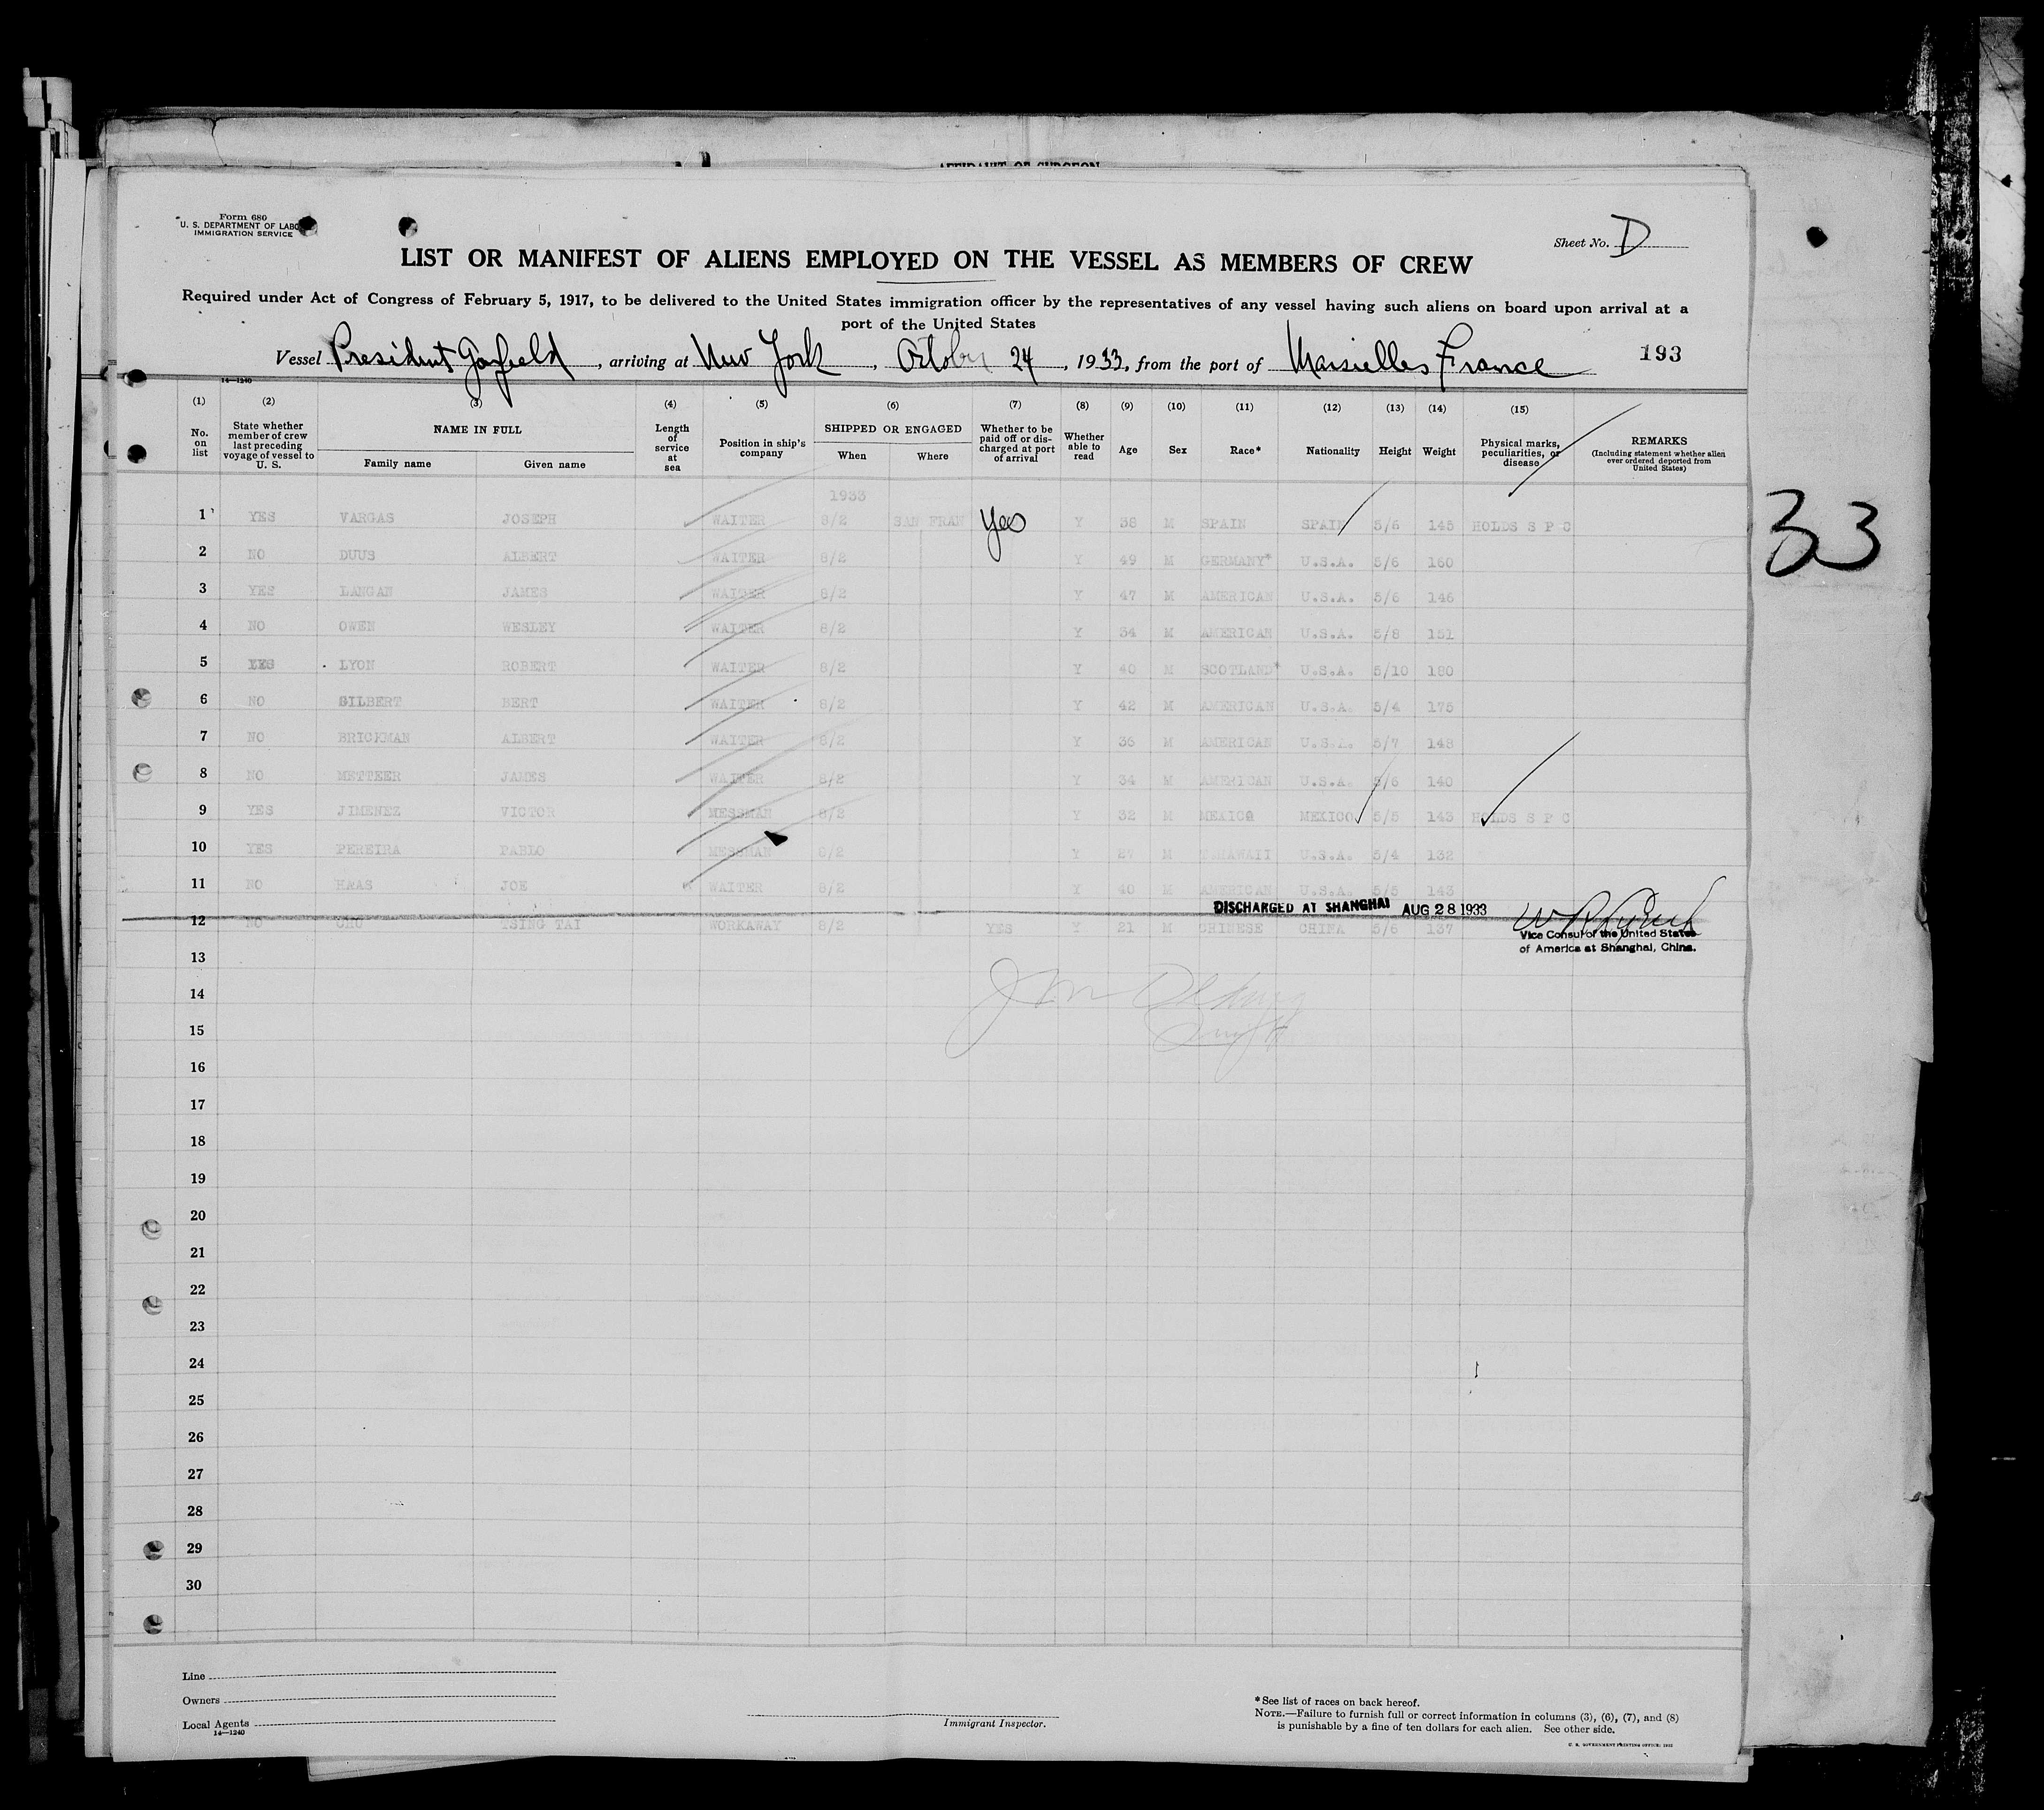 AFFIDAVIT OF SURGEON
Form 680
U. S. DEPARTMENT OF LABO
IMMIGRATION SERVICE
Sheet No. D
LIST OR MANIFEST OF ALIENS EMPLOYED ON THE VESSEL AS MEMBERS OF CREW
Required under Act of Congress of February 5, 1917, to be delivered to the United States immigration officer by the representatives of any vessel having such aliens on board upon arrival at a
port of the United States
Vessel President Garfield, arriving at New York, October 24, 1933, from the port of Marsielles France 193
14—1240
(1) (2) (3) (4) (5) (6) (7) (8) (9) (10) (11) (12) (13) (14) (15)
No. on list
State whether member of crew last preceding voyage of vessel to U. S.
NAME IN FULL
Family name
Given name
Length of service at sea
Position in ship's company
SHIPPED OR ENGAGED
When
Where
Whether to be paid off or discharged at port of arrival
Whether able to read
Age
Sex
Race*
Nationality
Height
Weight
Physical marks, peculiarities, or disease
REMARKS
(Including statement whether alien ever ordered deported from United States)
33
1933
1 YES VARGAS JOSEPH WAITER 8/2 SAN FRAN Yes Y 38 M SPAIN SPAIN 5/6 145 HOLDS S P C
2 NO DUUS ALBERT WAITER 8/2 Y 49 M GERMANY* U.S.A. 5/6 160
3 YES LANGAN JAMES WAITER 8/2 Y 47 M AMERICAN U.S.A. 5/6 146
4 NO OWEN WESLEY WAITER 8/2 Y 34 M AMERICAN U.S.A. 5/8 151
5 YES LYON ROBERT WAITER 8/2 Y 40 M SCOTLAND* U.S.A. 5/10 180
6 NO GILBERT BERT WAITER 8/2 Y 42 M AMERICAN U.S.A. 5/4 175
7 NO BRICKMAN ALBERT WAITER 8/2 Y 36 M AMERICAN U.S.A. 5/7 148
8 NO METTEER JAMES WAITER 8/2 Y 34 M AMERICAN U.S.A. 5/6 140
9 YES JIMENEZ VICTOR MESSMAN 8/2 Y 32 M MEXICO MEXICO 5/5 143 HOLDS S P C
10 YES PEREIRA PABLO MESSMAN 8/2 Y 27 M T.HAWAII U.S.A. 5/4 132
11 NO HAAS JOE WAITER 8/2 Y 40 M AMERICAN U.S.A. 5/5 143
DISCHARGED AT SHANGHAI AUG 28 1933
12 NO CHU TSING TAI WORKAWAY 8/2 YES Y 21 M CHINESE CHINA 5/6 137
Vice Consul of the United States
of America at Shanghai, China.
13
14
15
16
17
18
19
20
21
22
23
24
25
26
27
28
29
30
Line
Owners
Local Agents
14—1240
Immigrant Inspector.
*See list of races on back hereof.
NOTE.—Failure to furnish full or correct information in columns (3), (6), (7), and (8)
is punishable by a fine of ten dollars for each alien. See other side.
U. S. GOVERNMENT PRINTING OFFICE: 1932